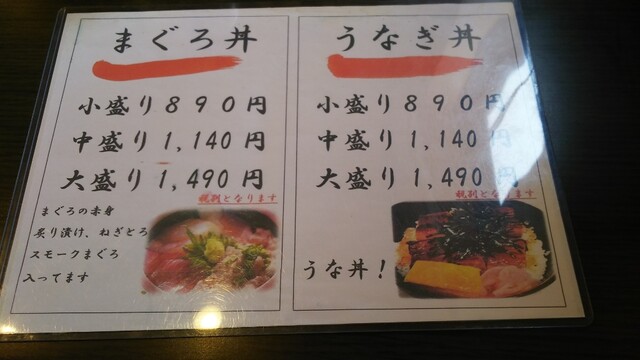 まぐろ丼
小盛り890円
中盛り1,140円
大盛り1,490円
税別となります
まぐろの赤身
炙り漬け、ねぎとろ
スモークまぐろ
入ってます
うなぎ丼
小盛り890円
中盛り1,140円
大盛り1,490円
税別となります
うな丼!